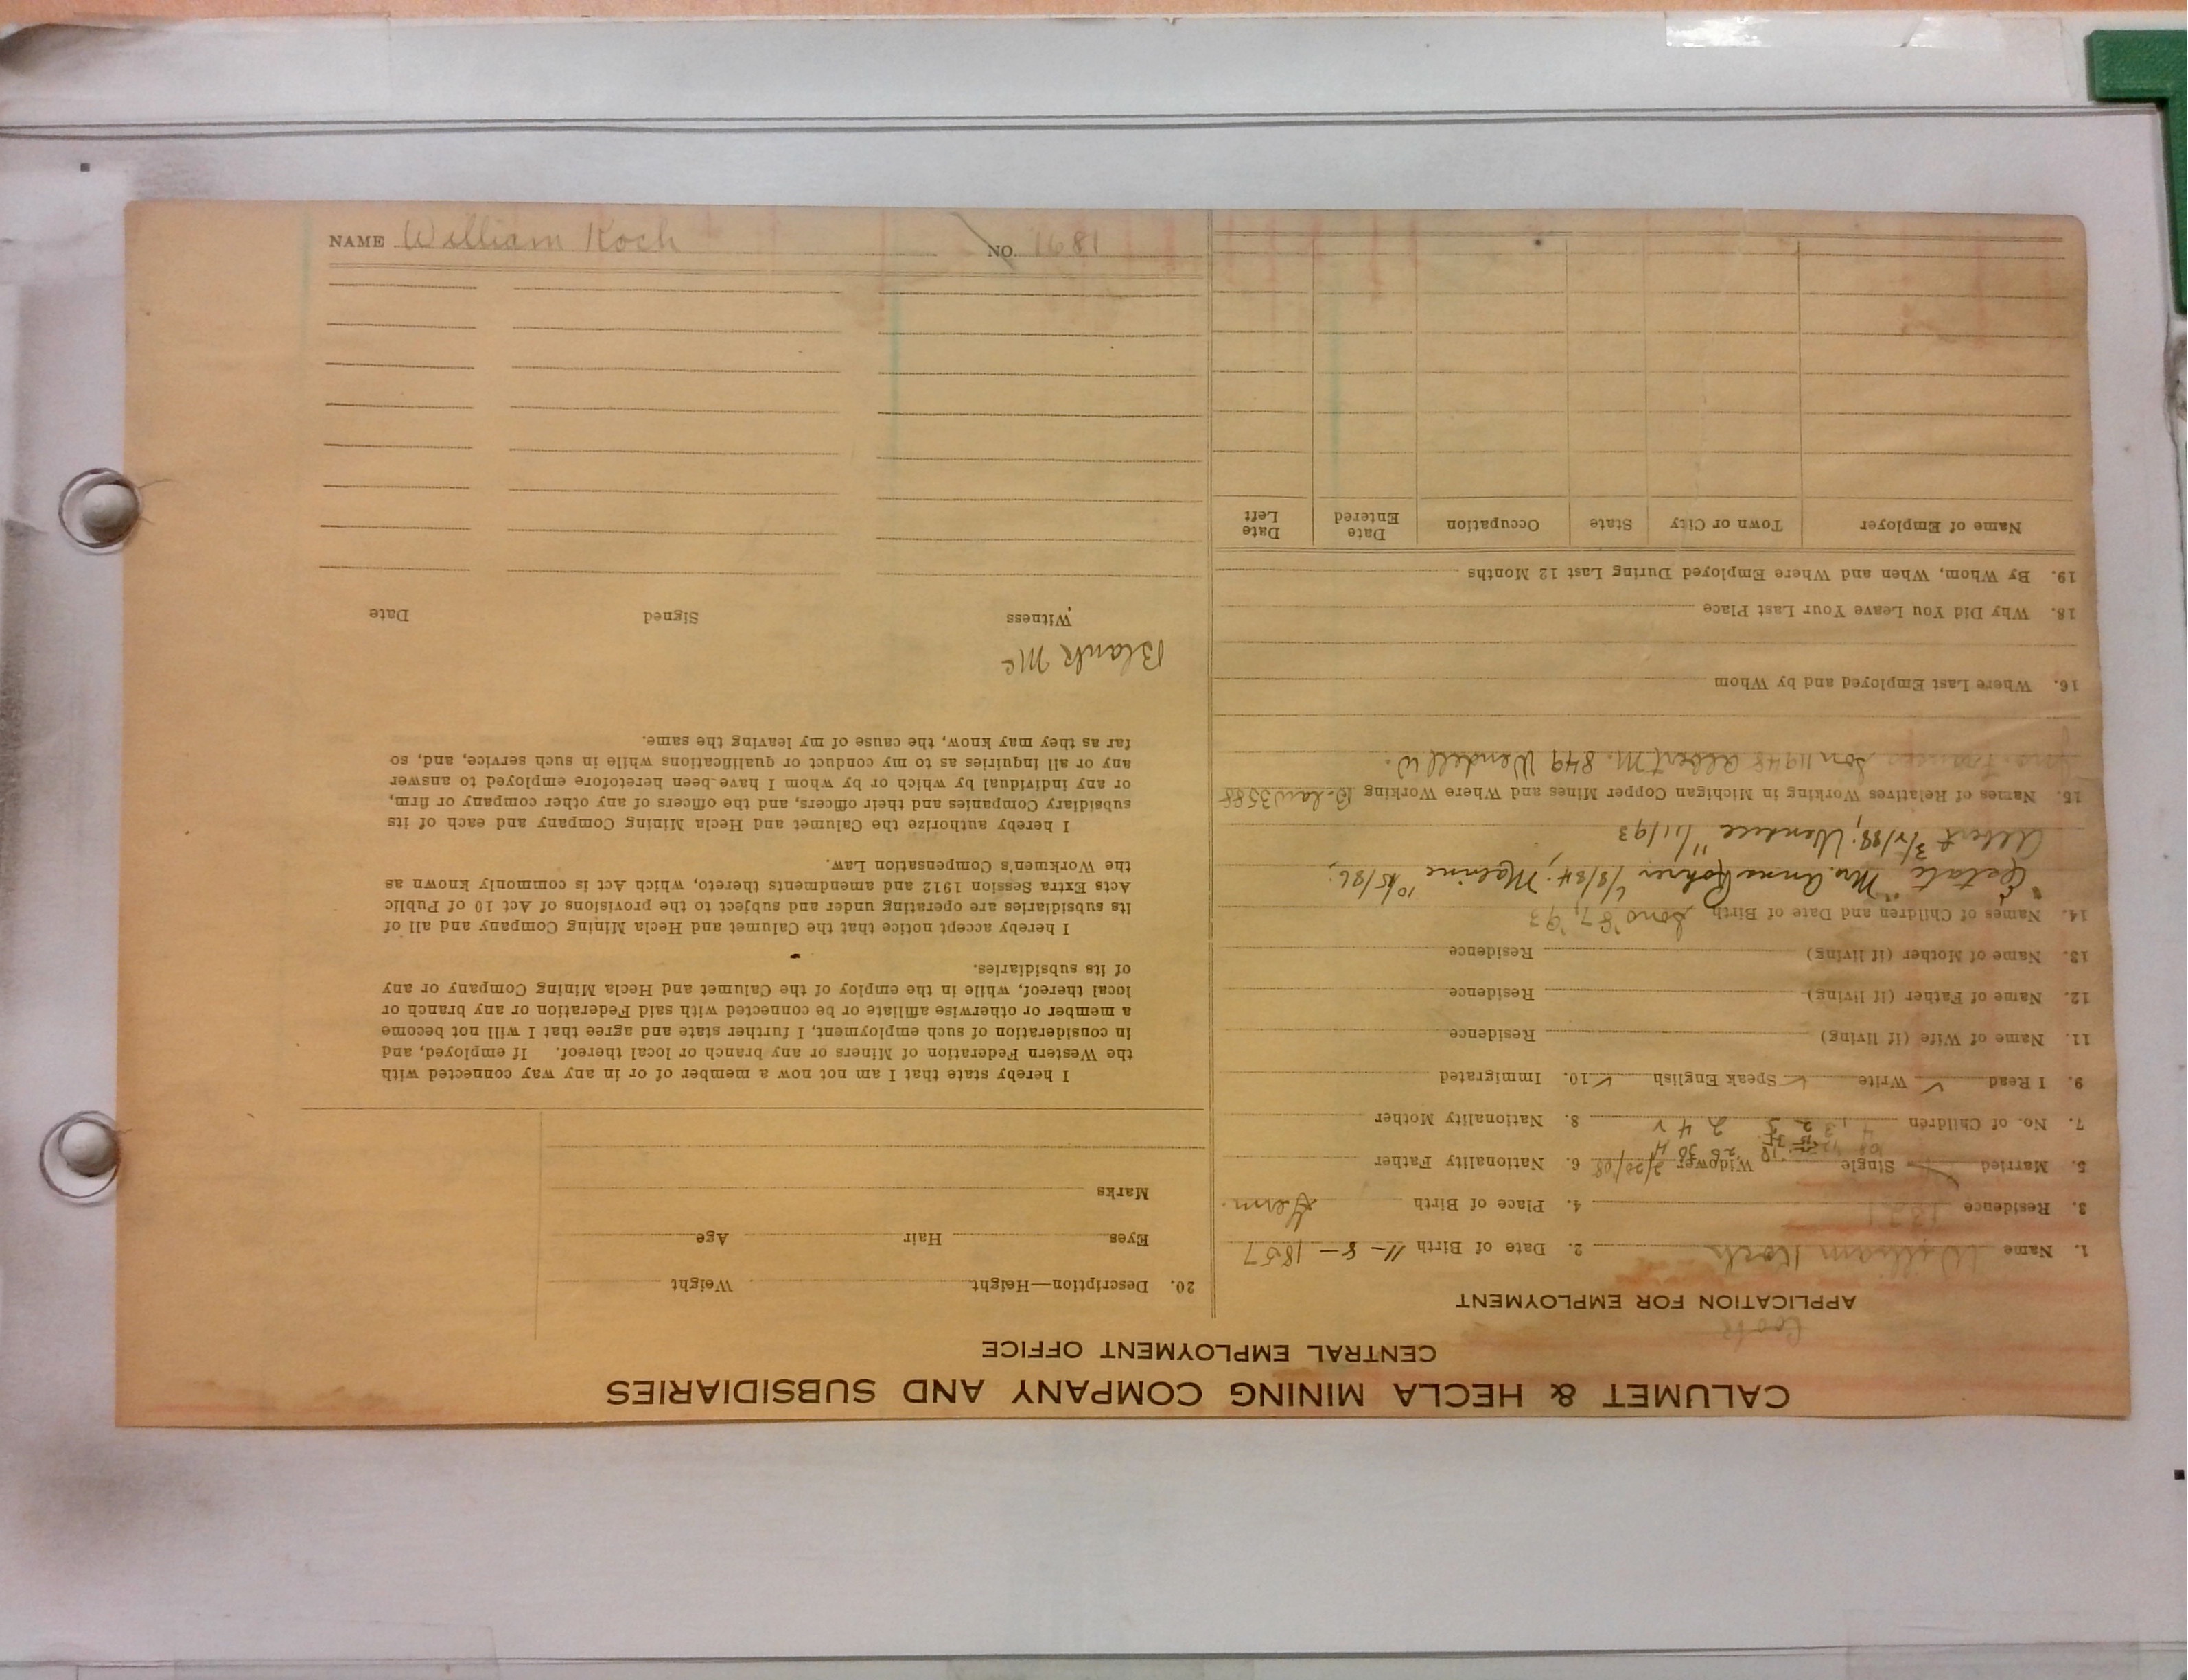 CALUMET & HECLA MINING COMPANY AND SUBSIDIARIES
CENTRAL EMPLOYMENT OFFICE
APPLICATION FOR EMPLOYMENT
1. Name William Koch 2. Date of Birth 11-8-1857
3. Residence 4. Place of Birth Germ.
5. Married Single Widower 2/20/08 6. Nationality Father
7. No. of Children 8. Nationality Mother
9. I Read ✓ Write ✓ Speak English ✓ 10. Immigrated
11. Name of Wife (if living) Residence
12. Name of Father (if living) Residence
13. Name of Mother (if living) Residence
14. Names of Children and Date of Birth Sons '87, '93
"Estate" Mrs. Anna Rohrer 1/8/84; 10/15/86;
Albert 3/ /88; 11/11/93
15. Names of Relatives Working in Michigan Copper Mines and Where Working B. Law 3588
Son 11948 Albert M. 849 Wendell W.
16. Where Last Employed and by Whom
18. Why Did You Leave Your Last Place
19. By Whom, When and Where Employed During Last 12 Months
Name of Employer Town or City State Occupation Date Entered Date Left
20. Description—Height Weight
Eyes Hair Age
Marks
I hereby state that I am not now a member of or in any way connected with
the Western Federation of Miners or any branch or local thereof. If employed, and
in consideration of such employment, I further state and agree that I will not become
a member or otherwise affiliate or be connected with said Federation or any branch or
local thereof, while in the employ of the Calumet and Hecla Mining Company or any
of its subsidiaries.
I hereby accept notice that the Calumet and Hecla Mining Company and all of
its subsidiaries are operating under and subject to the provisions of Act 10 of Public
Acts Extra Session 1912 and amendments thereto, which Act is commonly known as
the Workmen's Compensation Law.
I hereby authorize the Calumet and Hecla Mining Company and each of its
subsidiary Companies and their officers, and the officers of any other company or firm,
or any individual by which or by whom I have been heretofore employed to answer
any or all inquiries as to my conduct or qualifications while in such service, and, so
far as they may know, the cause of my leaving the same.
Blank Mc
Witness Signed Date
NAME William Koch NO. 1681